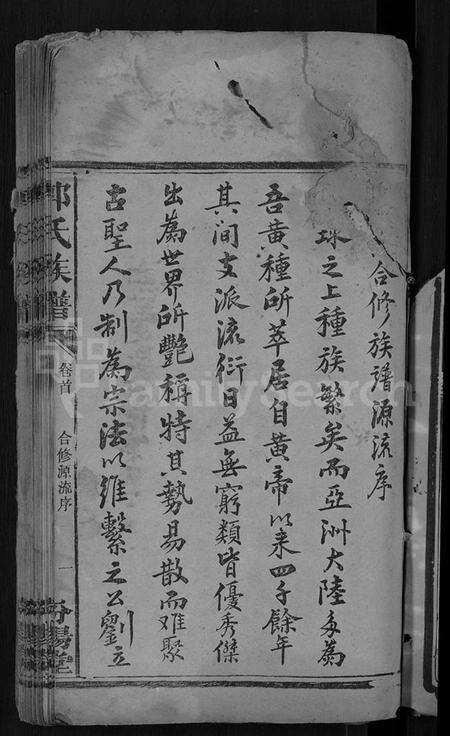 合修族譜源流序
球之上種族繁矣而亞洲大陸多為
吾黃種所萃居自黃帝以来四千餘年
其间支派流衍日益無窮類皆優秀傑
出為世界所艷稱特其勢易散而难聚
古聖人乃制為宗法以維繫之公劉立
氏族譜
卷首
合修源流序
一
FamilySearch